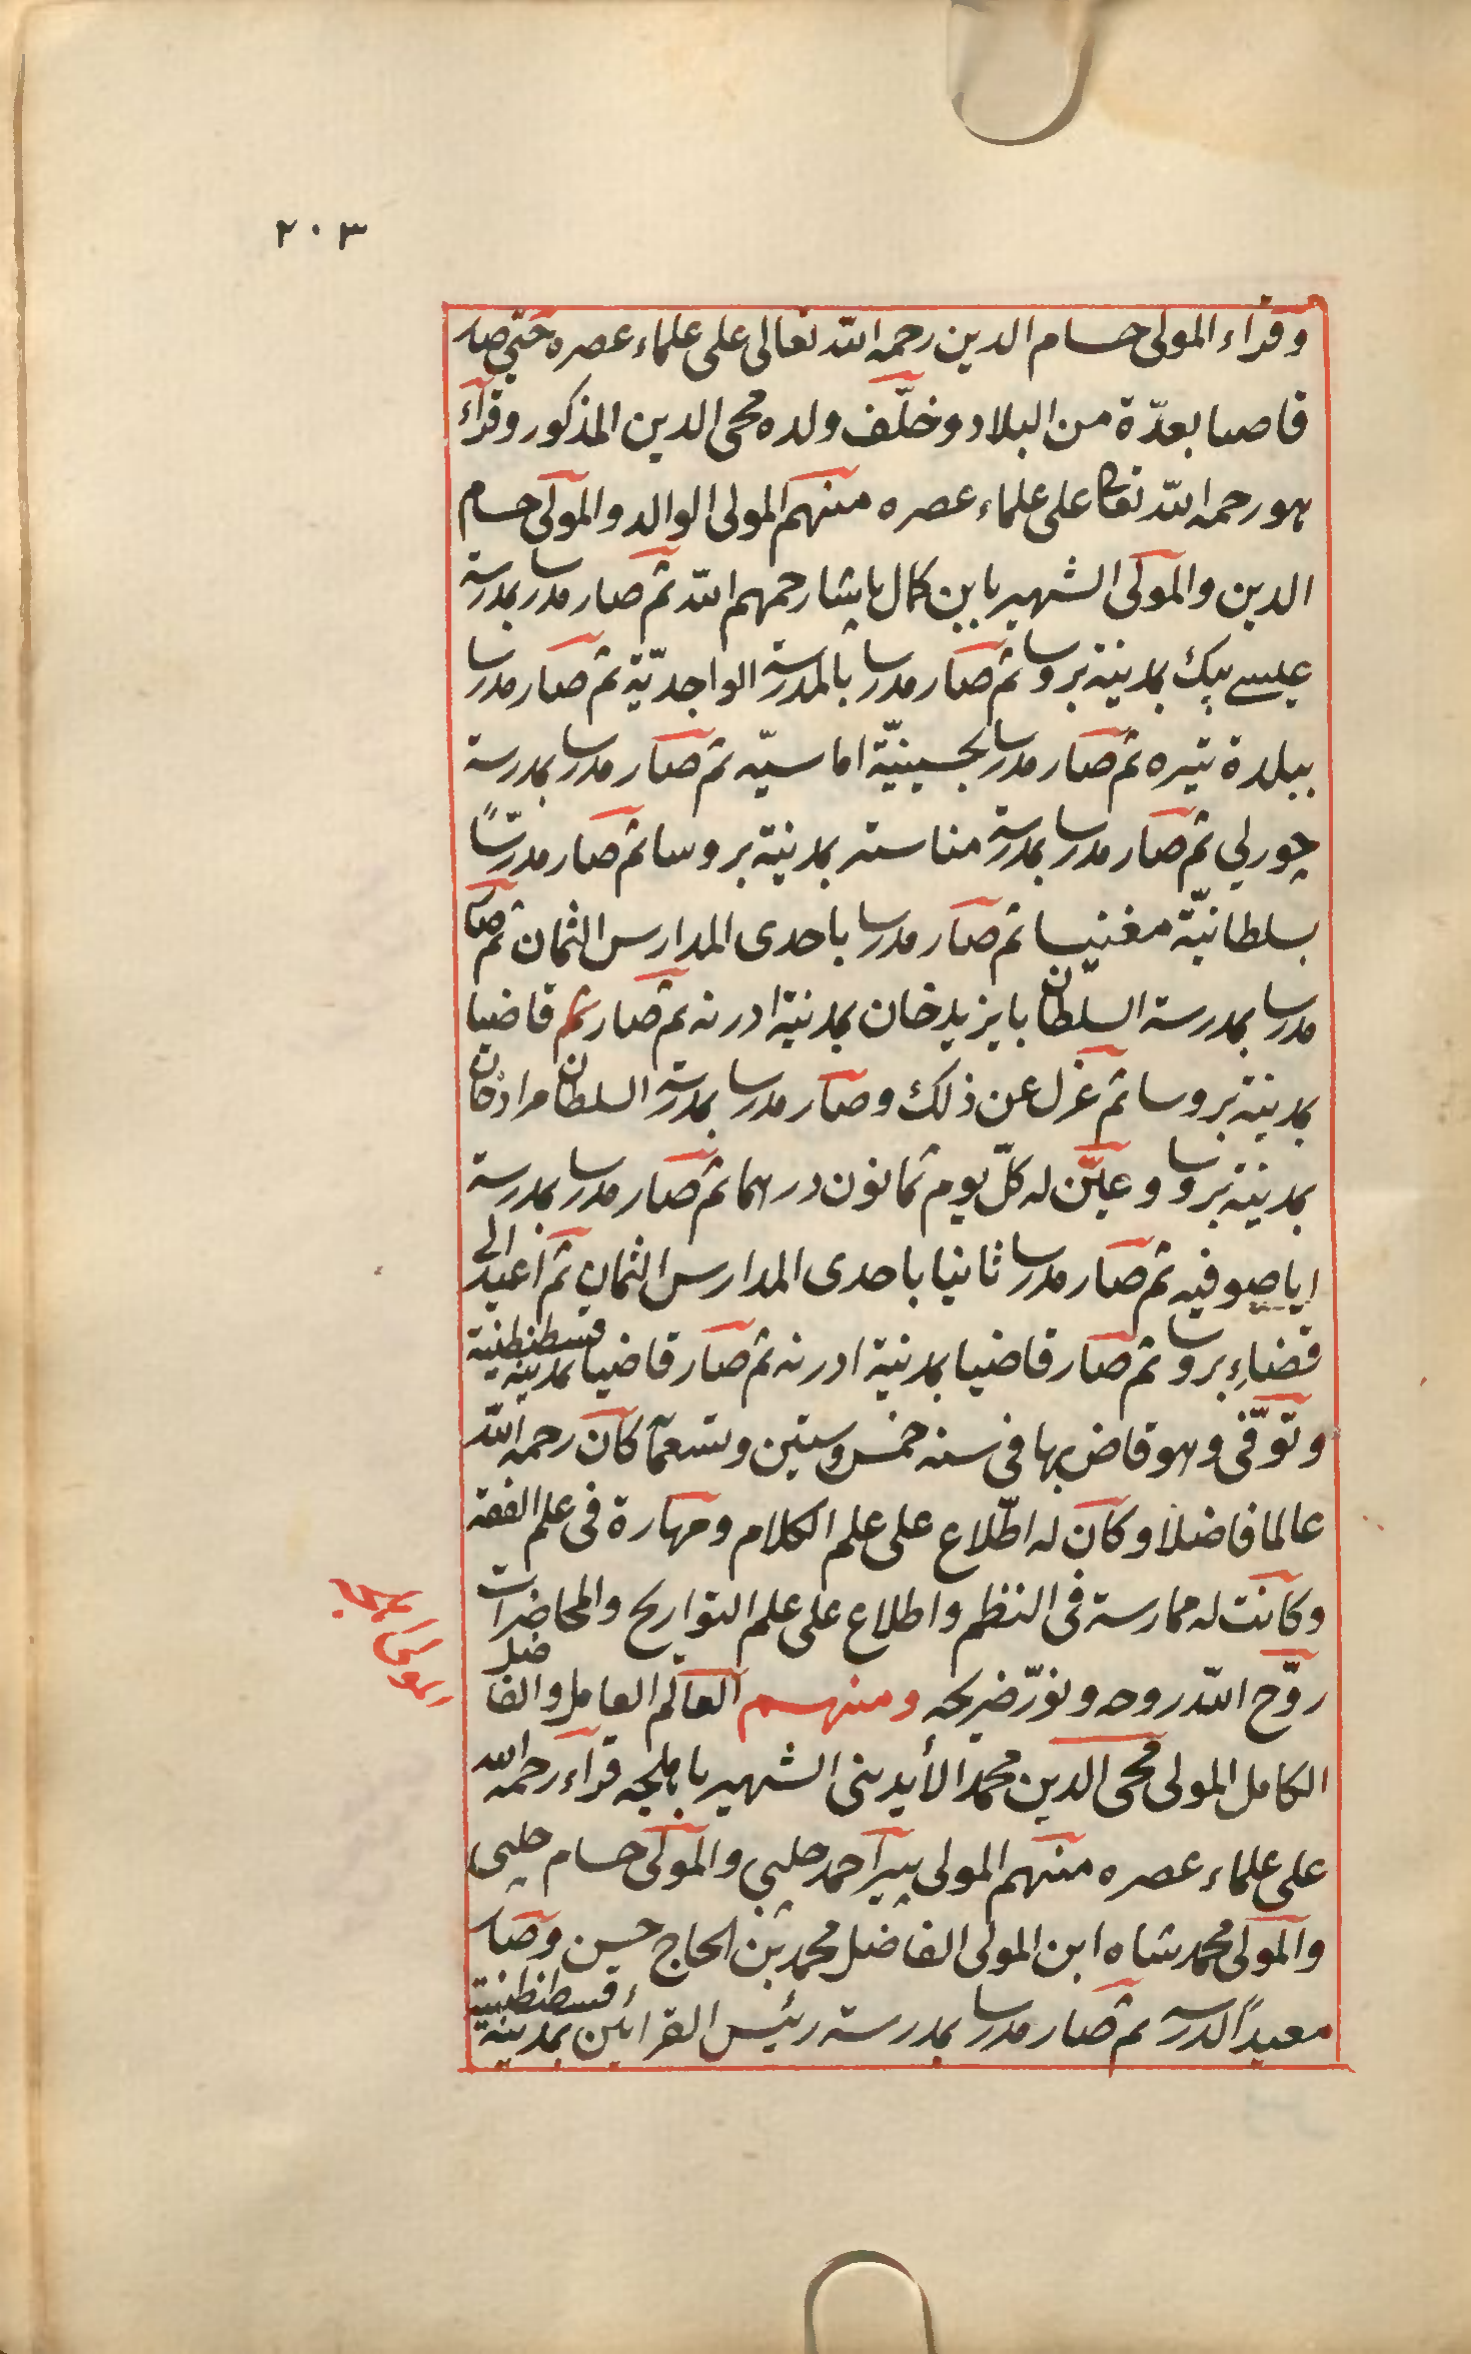 ٢٠٣
وقراء المولى حسام الدين رحمه الله تعالى على علماء عصره حتى صار
قاضيا بعدّة من البلاد وخلّف ولده محى الدين المذكور وقرآء
هو رحمه الله تعالى على علماء عصره منهم المولى الوالد والمولى حسام
الدين والمولى الشهير بابن كمال پاشا رحمهم الله ثم صار مدرسا بمدرسة
عيسى بيك بمدينة بروسا ثم صار مدرسا بالمدرسة الواجديّة ثم صار مدرسا
ببلدة تيره ثم صار مدرسا بحسينيّة اماسيّه ثم صار مدرسا بمدرسة
چورلى ثم صار مدرسا بمدرسة مناستر بمدينة بروسا ثم صار مدرّسًا
بسلطانيّة مغنيسا ثم صار مدرسا باحدى المدارس الثمان ثم صار
مدرسا بمدرسة السلطان بايزيد خان بمدينة ادرنه ثم صار ثم قاضيا
بمدينة بروسا ثم عزل عن ذلك وصار مدرسا بمدرسة السلطان مراد خان
بمدينة بروسا وعيّن له كلّ يوم ثمانون درهما ثم صار مدرسا بمدرسة
اياصوفيه ثم صار مدرسا ثانيا باحدى المدارس الثمان ثم اعيد الى
قضاء بروسا ثم صار قاضيا بمدينة ادرنه ثم صار قاضيا بمدينة قسطنطنية
وتوفّى وهو قاض بها فى سنه خمس وستين وتسعمآ كان رحمه الله
عالما فاضلا وكان له اطّلاع على علم الكلام ومهارة فى علم الفقه
وكانت له ممارسة فى النظم واطلاع على علم التواريح والمحاضرات
روّح الله روحه ونوّر ضريحه ومنهم العالم العامل والفاضل
الكامل المولى محى الدين محمد الأيدينى الشهير باهلجه قرآء رحمه الله
على علماء عصره منهم المولى پير احمد چلبي والمولى حسام چلبى
والمولى محمد شاه ابن المولى الفاضل محمد بن الحاج حسن وصار
معيدًا لدرسه ثم صار مدرسا بمدرسة رئيس القرابين بمدينة قسطنطنية
المولى